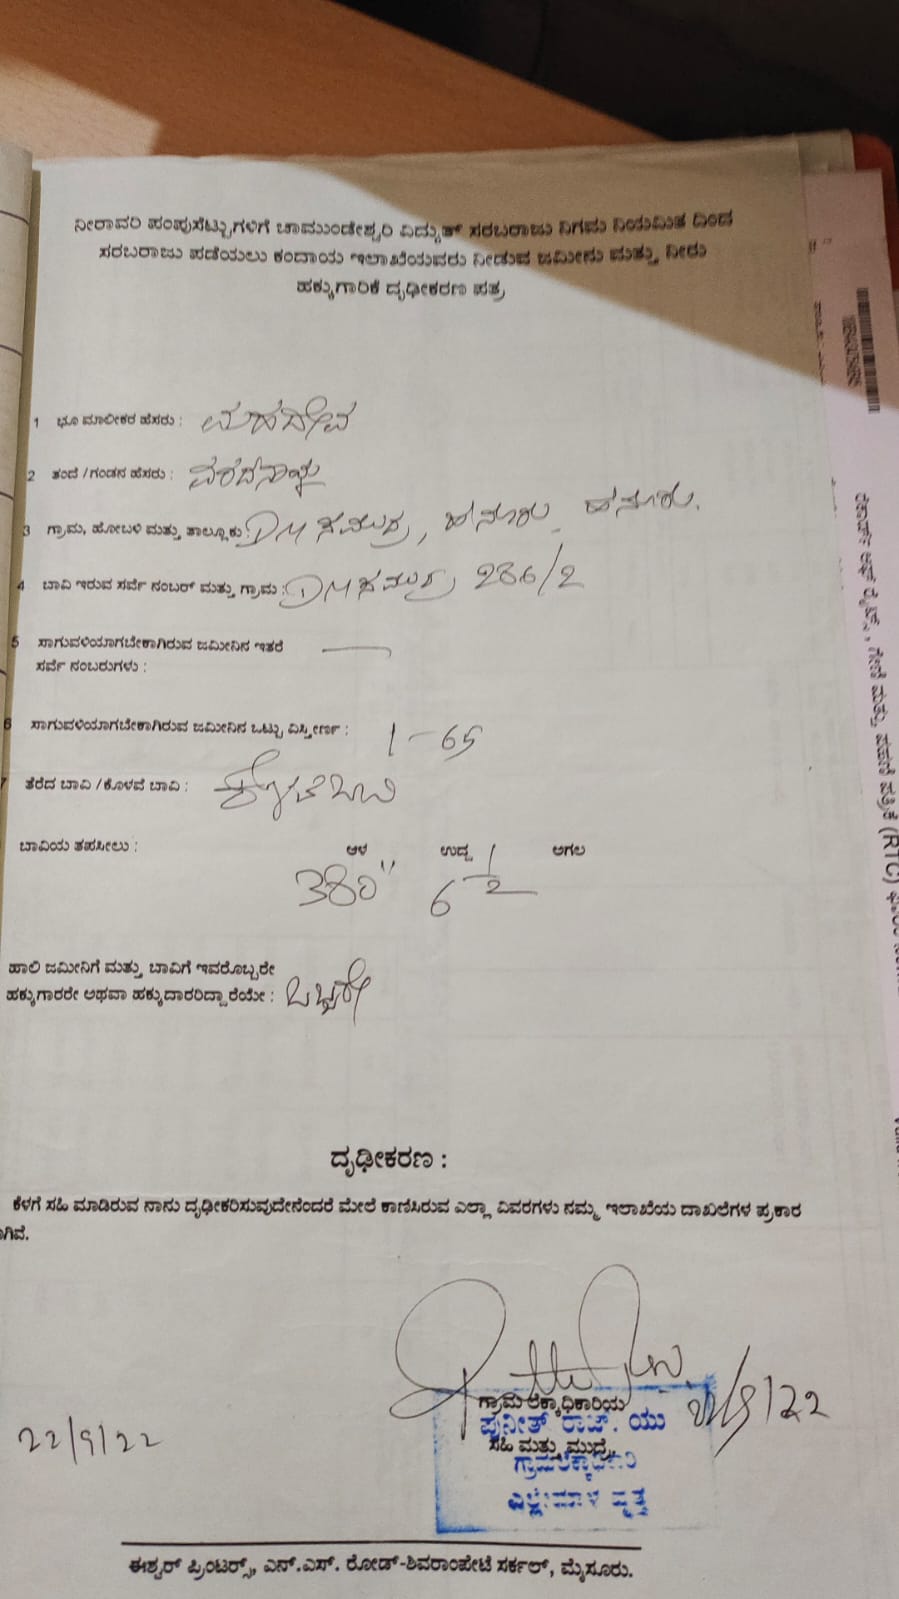 ನೀರಾವರಿ ಪಂಪುಸೆಟ್ಟುಗಳಿಗೆ ಚಾಮುಂಡೇಶ್ವರಿ ವಿದ್ಯುತ್ ಸರಬರಾಜು ನಿಗಮ ನಿಯಮಿತ ದಿಂದ
ಸರಬರಾಜು ಪಡೆಯಲು ಕಂದಾಯ ಇಲಾಖೆಯವರು ನೀಡುವ ಜಮೀನು ಮತ್ತು ನೀರು
ಹಕ್ಕುಗಾರಿಕೆ ದೃಢೀಕರಣ ಪತ್ರ
1 ಭೂ ಮಾಲೀಕರ ಹೆಸರು : ಮಹದೇವ
2 ತಂದೆ / ಗಂಡನ ಹೆಸರು : ವರದನಾಯ್ಡು
3 ಗ್ರಾಮ, ಹೋಬಳಿ ಮತ್ತು ತಾಲ್ಲೂಕು : DM ಸಮುದ್ರ, ಹನೂರು. ಹನೂರು.
4 ಬಾವಿ ಇರುವ ಸರ್ವೆ ನಂಬರ್ ಮತ್ತು ಗ್ರಾಮ : DM ಸಮುದ್ರ 286/2
5 ಸಾಗುವಳಿಯಾಗಬೇಕಾಗಿರುವ ಜಮೀನಿನ ಇತರೆ —
ಸರ್ವೆ ನಂಬರುಗಳು :
6 ಸಾಗುವಳಿಯಾಗಬೇಕಾಗಿರುವ ಜಮೀನಿನ ಒಟ್ಟು ವಿಸ್ತೀರ್ಣ : 1-65
7 ತೆರೆದ ಬಾವಿ / ಕೊಳವೆ ಬಾವಿ : ಕೊಳವೆ ಬಾವಿ
ಬಾವಿಯ ತಪಸೀಲು : ಆಳ ಉದ್ದ ಅಗಲ
380" 6 1/2
ಹಾಲಿ ಜಮೀನಿಗೆ ಮತ್ತು ಬಾವಿಗೆ ಇವರೊಬ್ಬರೇ
ಹಕ್ಕುಗಾರರೇ ಅಥವಾ ಹಕ್ಕುದಾರರಿದ್ದಾರೆಯೇ : ಒಬ್ಬರೇ
ದೃಢೀಕರಣ :
ಕೆಳಗೆ ಸಹಿ ಮಾಡಿರುವ ನಾನು ದೃಢೀಕರಿಸುವುದೇನೆಂದರೆ ಮೇಲೆ ಕಾಣಿಸಿರುವ ಎಲ್ಲಾ ವಿವರಗಳು ನಮ್ಮ ಇಲಾಖೆಯ ದಾಖಲೆಗಳ ಪ್ರಕಾರ
ಗ್ರಾಮ ಲೆಕ್ಕಾಧಿಕಾರಿಯ
22/9/22
ಪುನೀತ್ ರಾಜ್. ಯು
ಸಹಿ ಮತ್ತು ಮುದ್ರೆ
22/9/22
ಗ್ರಾಮಲೆಕ್ಕಾಧಿಕಾರಿ
ವೃತ್ತ
ಈಶ್ವರ್ ಪ್ರಿಂಟರ್ಸ್, ಎನ್.ಎಸ್. ರೋಡ್-ಶಿವರಾಂಪೇಟೆ ಸರ್ಕಲ್, ಮೈಸೂರು.